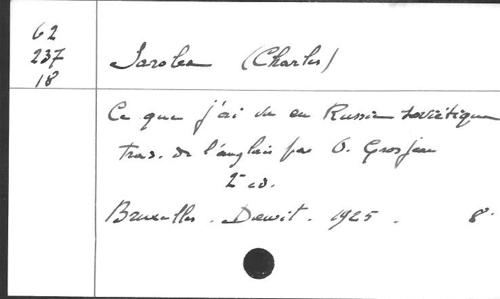 62
237
18
Sarolea (Charles)
Ce que j'ai vu en Russie soviétique
trad. de l'anglais par O. Grosjean
2e éd.
Bruxelles. Dewit. 1925. 8°